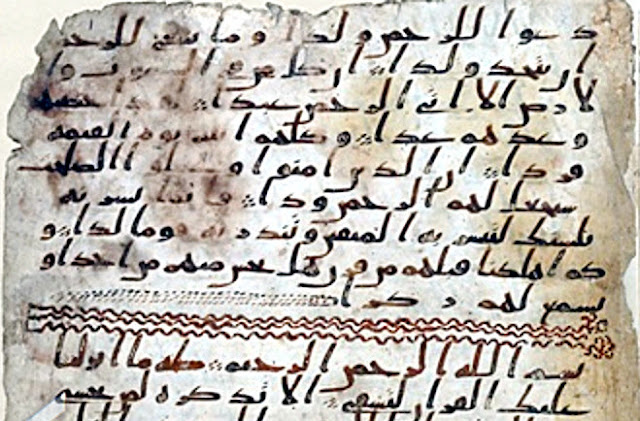 دعوا للرحمن ولدا وما ينبغي للرحمن
ان يتخذ ولدا ان كل من في السموت وا
لارض الا اتي الرحمن عبدا لقد احصيهم
وعدهم عدا وكلهم اتيه يوم القيمه
فردا ان الذين امنوا وعملوا الصلحت
سيجعل لهم الرحمن ودا فانما يسرنه
بلسنك لتبشر به المتقين وتنذر به قوما لدا و
كم اهلكنا قبلهم من قرن هل تحس منهم من احد او
تسمع لهم ركزا
بسم الله الرحمن الرحيم طه ما انزلنا
عليك القران لتشقى الا تذكره لمن يخشى